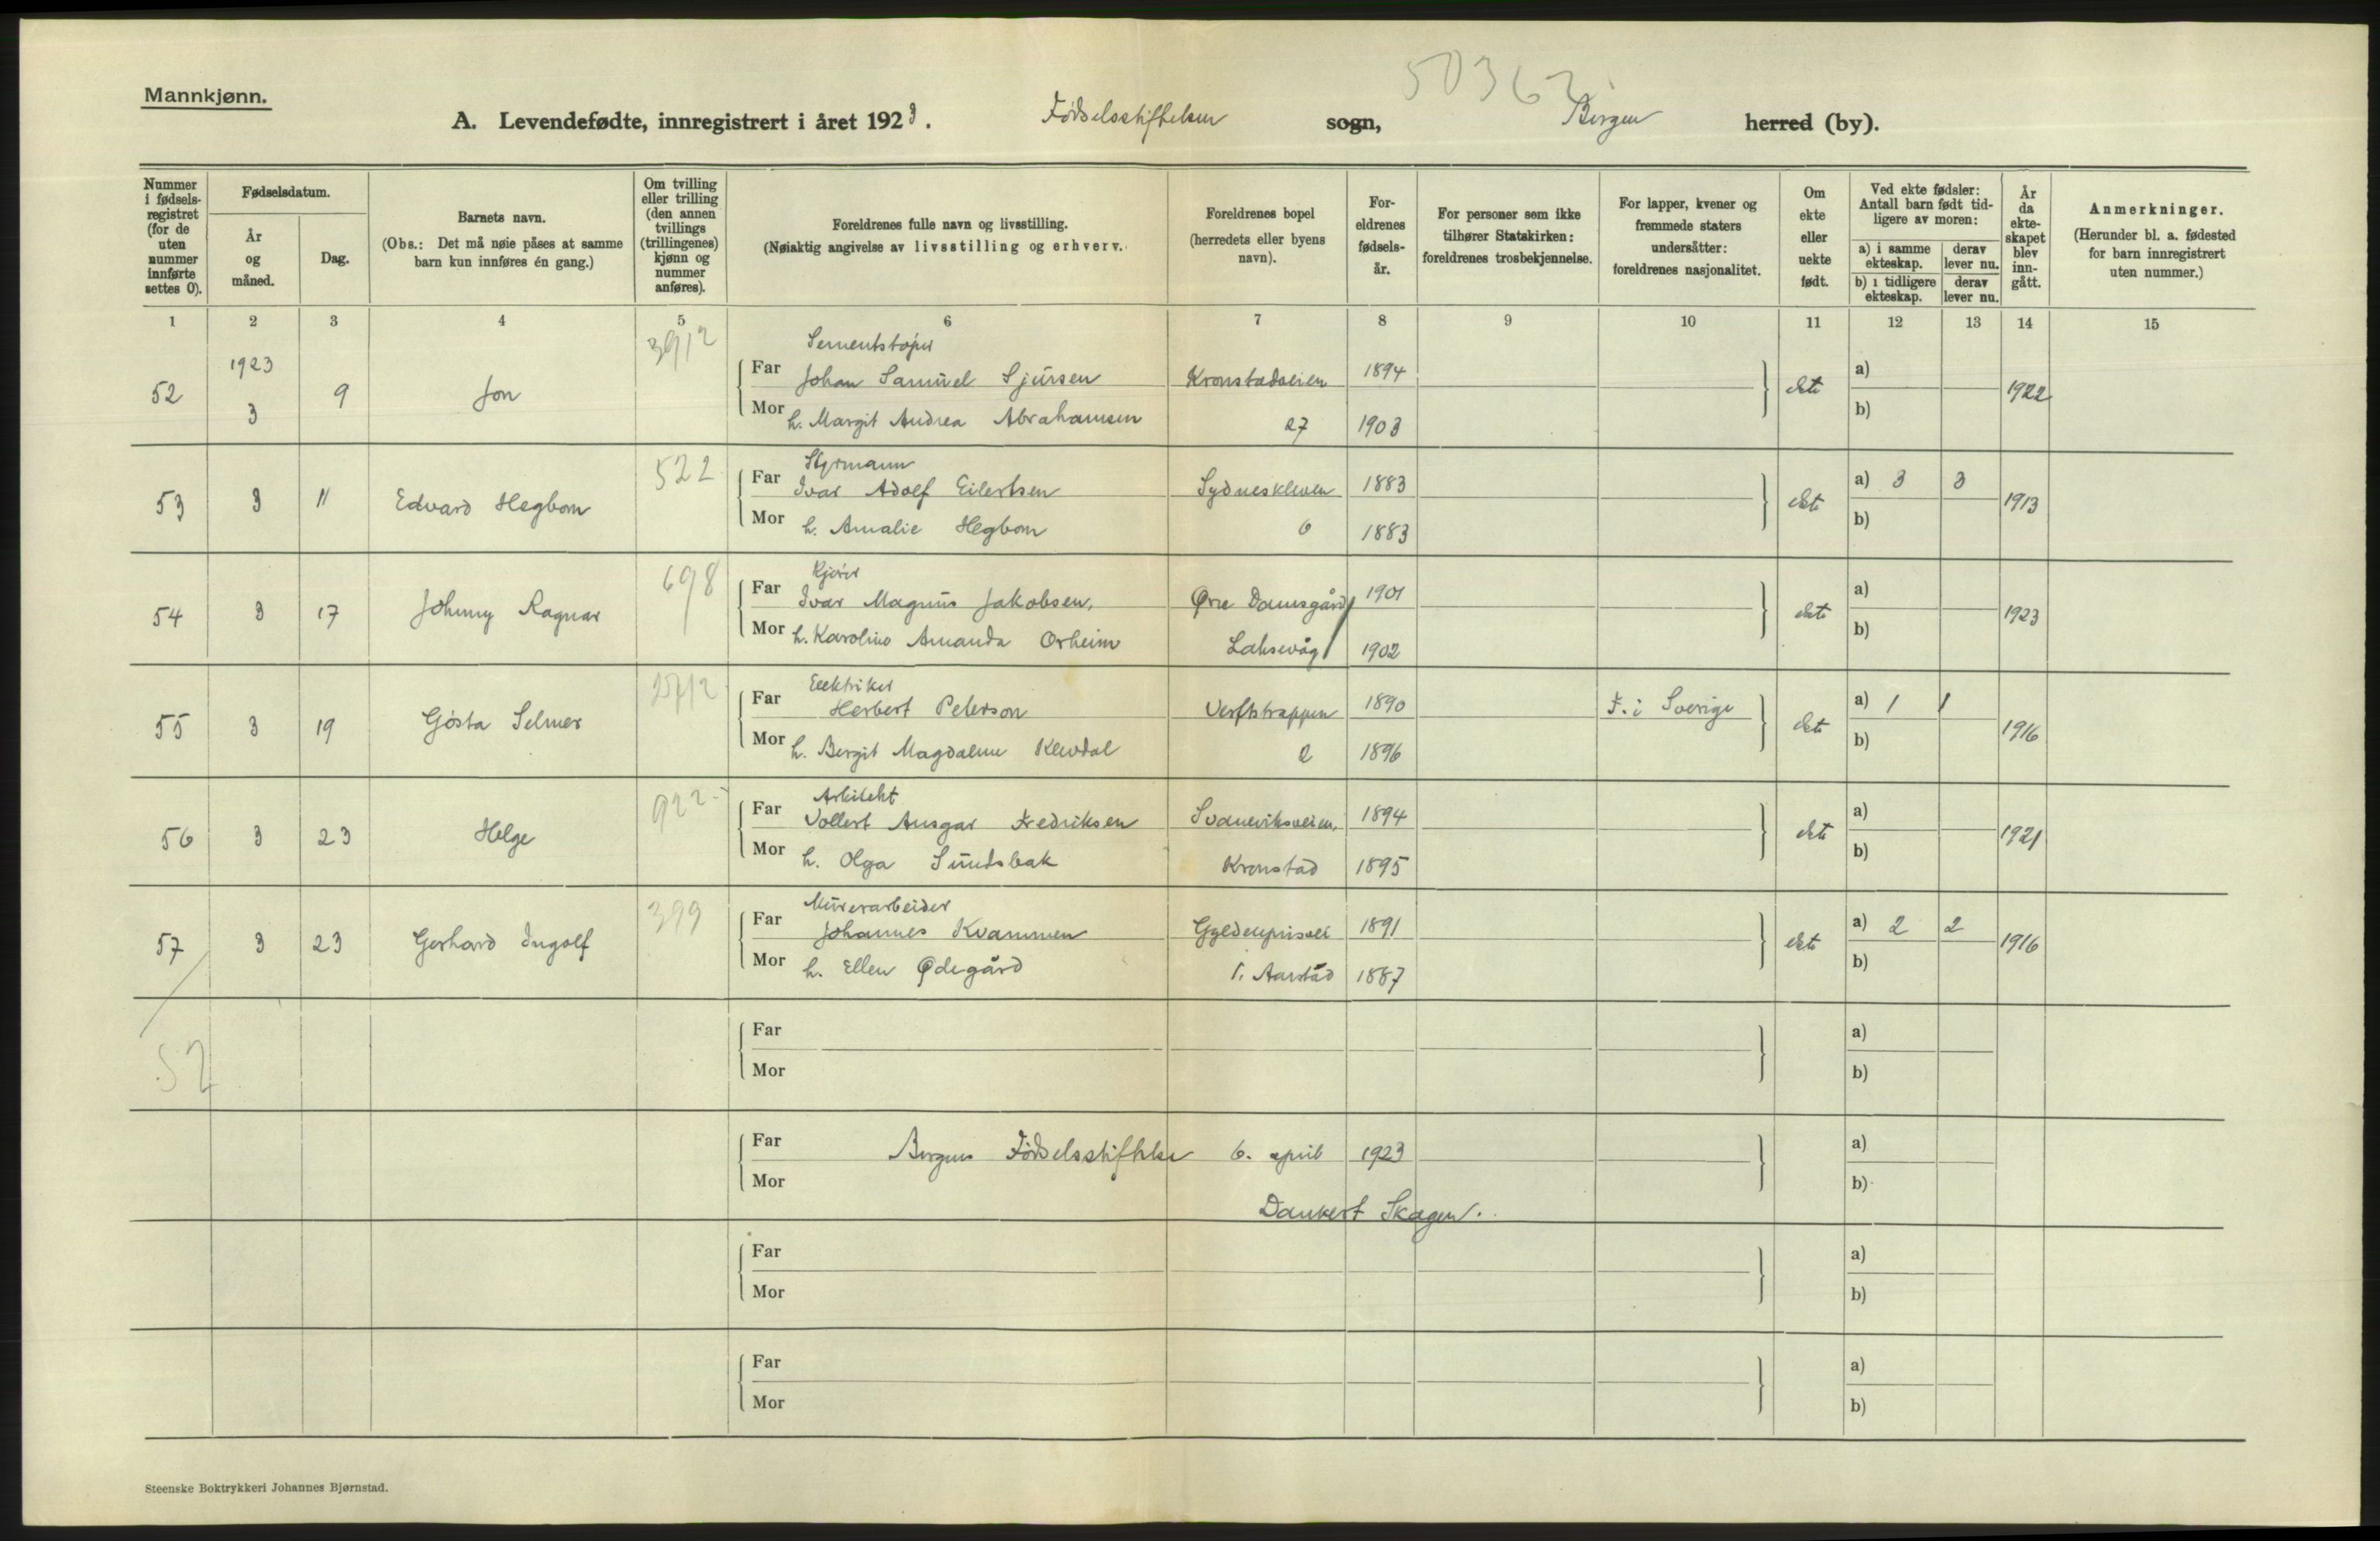 50362
Mannkjønn.
A. Levendefødte, innregistrert i året 1923. Fødselsstiftelsen sogn, Bergen herred (by).
Nummer i fødsels-registret (for de uten nummer innførte settes 0).
Fødselsdatum.
År og måned.
Dag.
Barnets navn.
(Obs.: Det må nøie påses at samme barn kun innføres én gang.)
Om tvilling eller trilling (den annen tvillings (trillingenes) kjønn og nummer anføres).
Foreldrenes fulle navn og livsstilling.
(Nøiaktig angivelse av livsstilling og erhverv.)
Foreldrenes bopel (herredets eller byens navn).
For-eldrenes fødsels-år.
For personer som ikke tilhører Statskirken: foreldrenes trosbekjennelse.
For lapper, kvener og fremmede staters undersåtter: foreldrenes nasjonalitet.
Om ekte eller uekte født.
Ved ekte fødsler: Antall barn født tid-ligere av moren:
a) i samme ekteskap. derav lever nu.
b) i tidligere ekteskap. derav lever nu.
År da ekte-skapet blev inn-gått.
Anmerkninger.
(Herunder bl. a. fødested for barn innregistrert uten nummer.)
1 2 3 4 5 6 7 8 9 10 11 12 13 14 15
3912 Sementstøper
52 1923 3 9 Jon Far Johan Samuel Sjursen Kronstadveien 1894 ekte a) 1922
Mor h. Margit Andrea Abrahamsen 27 1903 b)
522 Styrmann
53 3 11 Edvard Hegbom Far Ivar Adolf Eilertsen Sydneskleven 1883 ekte a) 3 3 1913
Mor h. Amalie Hegbom 6 1883 b)
698 Kjører
54 3 17 Johnny Ragnar Far Ivar Magnus Jakobsen, Øvre Damsgård 1901 ekte a) 1923
Mor h. Karoline Amanda Orheim Laksevåg 1902 b)
2712 Elektriker
55 3 19 Gösta Selmer Far Herbert Peterson Verftstrappen 1890 F. i Sverige ekte a) 1 1 1916
Mor h. Bergit Magdalene Klevdal 2 1896 b)
922 Arkitekt
56 3 23 Helge Far Vollert Ansgar Fredriksen Svaneviksveien, 1894 ekte a) 1921
Mor h. Olga Sundsbak Kronstad 1895 b)
399 Murerarbeider
57 3 23 Gerhard Ingolf Far Johannes Kvammen Gyldenprisvei 1891 ekte a) 2 2 1916
Mor h. Ellen Ødegård Aarstad 1887 b)
52 Far a)
Mor b)
Far Bergens Fødselsstiftelse 6. april 1923 a)
Mor b)
Dankert Skagen.
Far a)
Mor b)
Far a)
Mor b)
Steenske Boktrykkeri Johannes Bjørnstad.